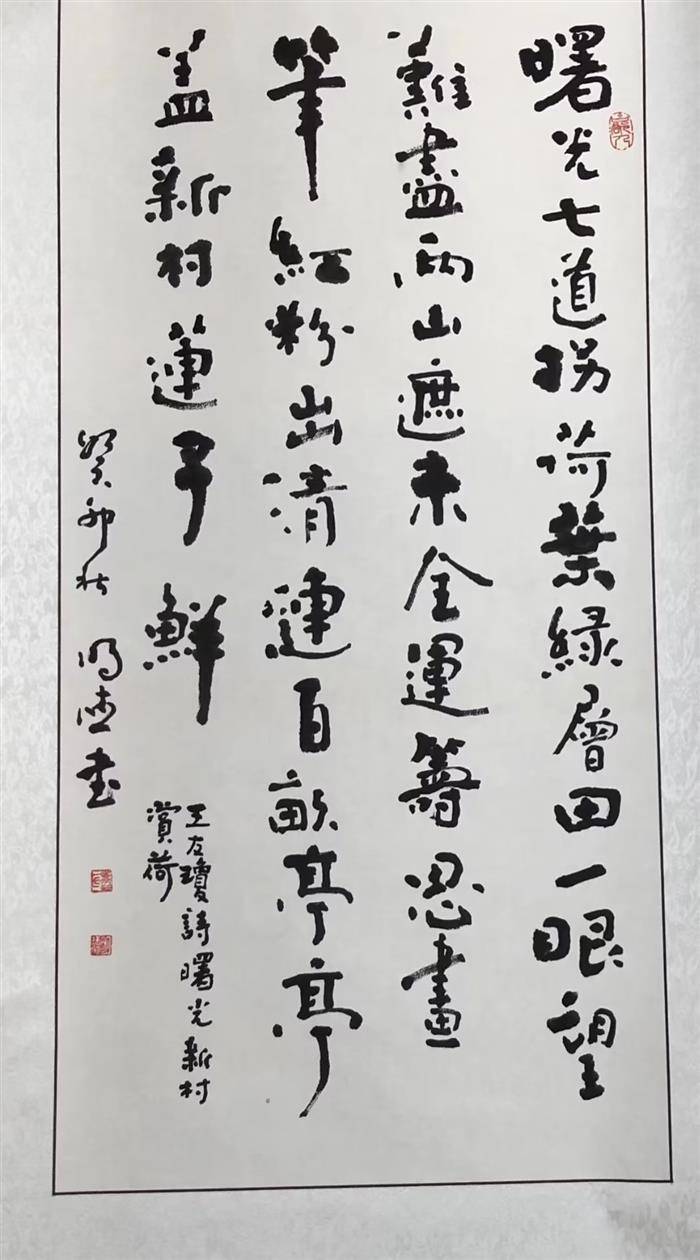 曙光七道拐荷葉緑層田一眼望
難盡兩山遮未全運籌思畫
筆紅粉出清漣百畝亭亭
盖新村蓮子鮮
王友瓊詩曙光新村
賞荷
癸卯秋 明德書